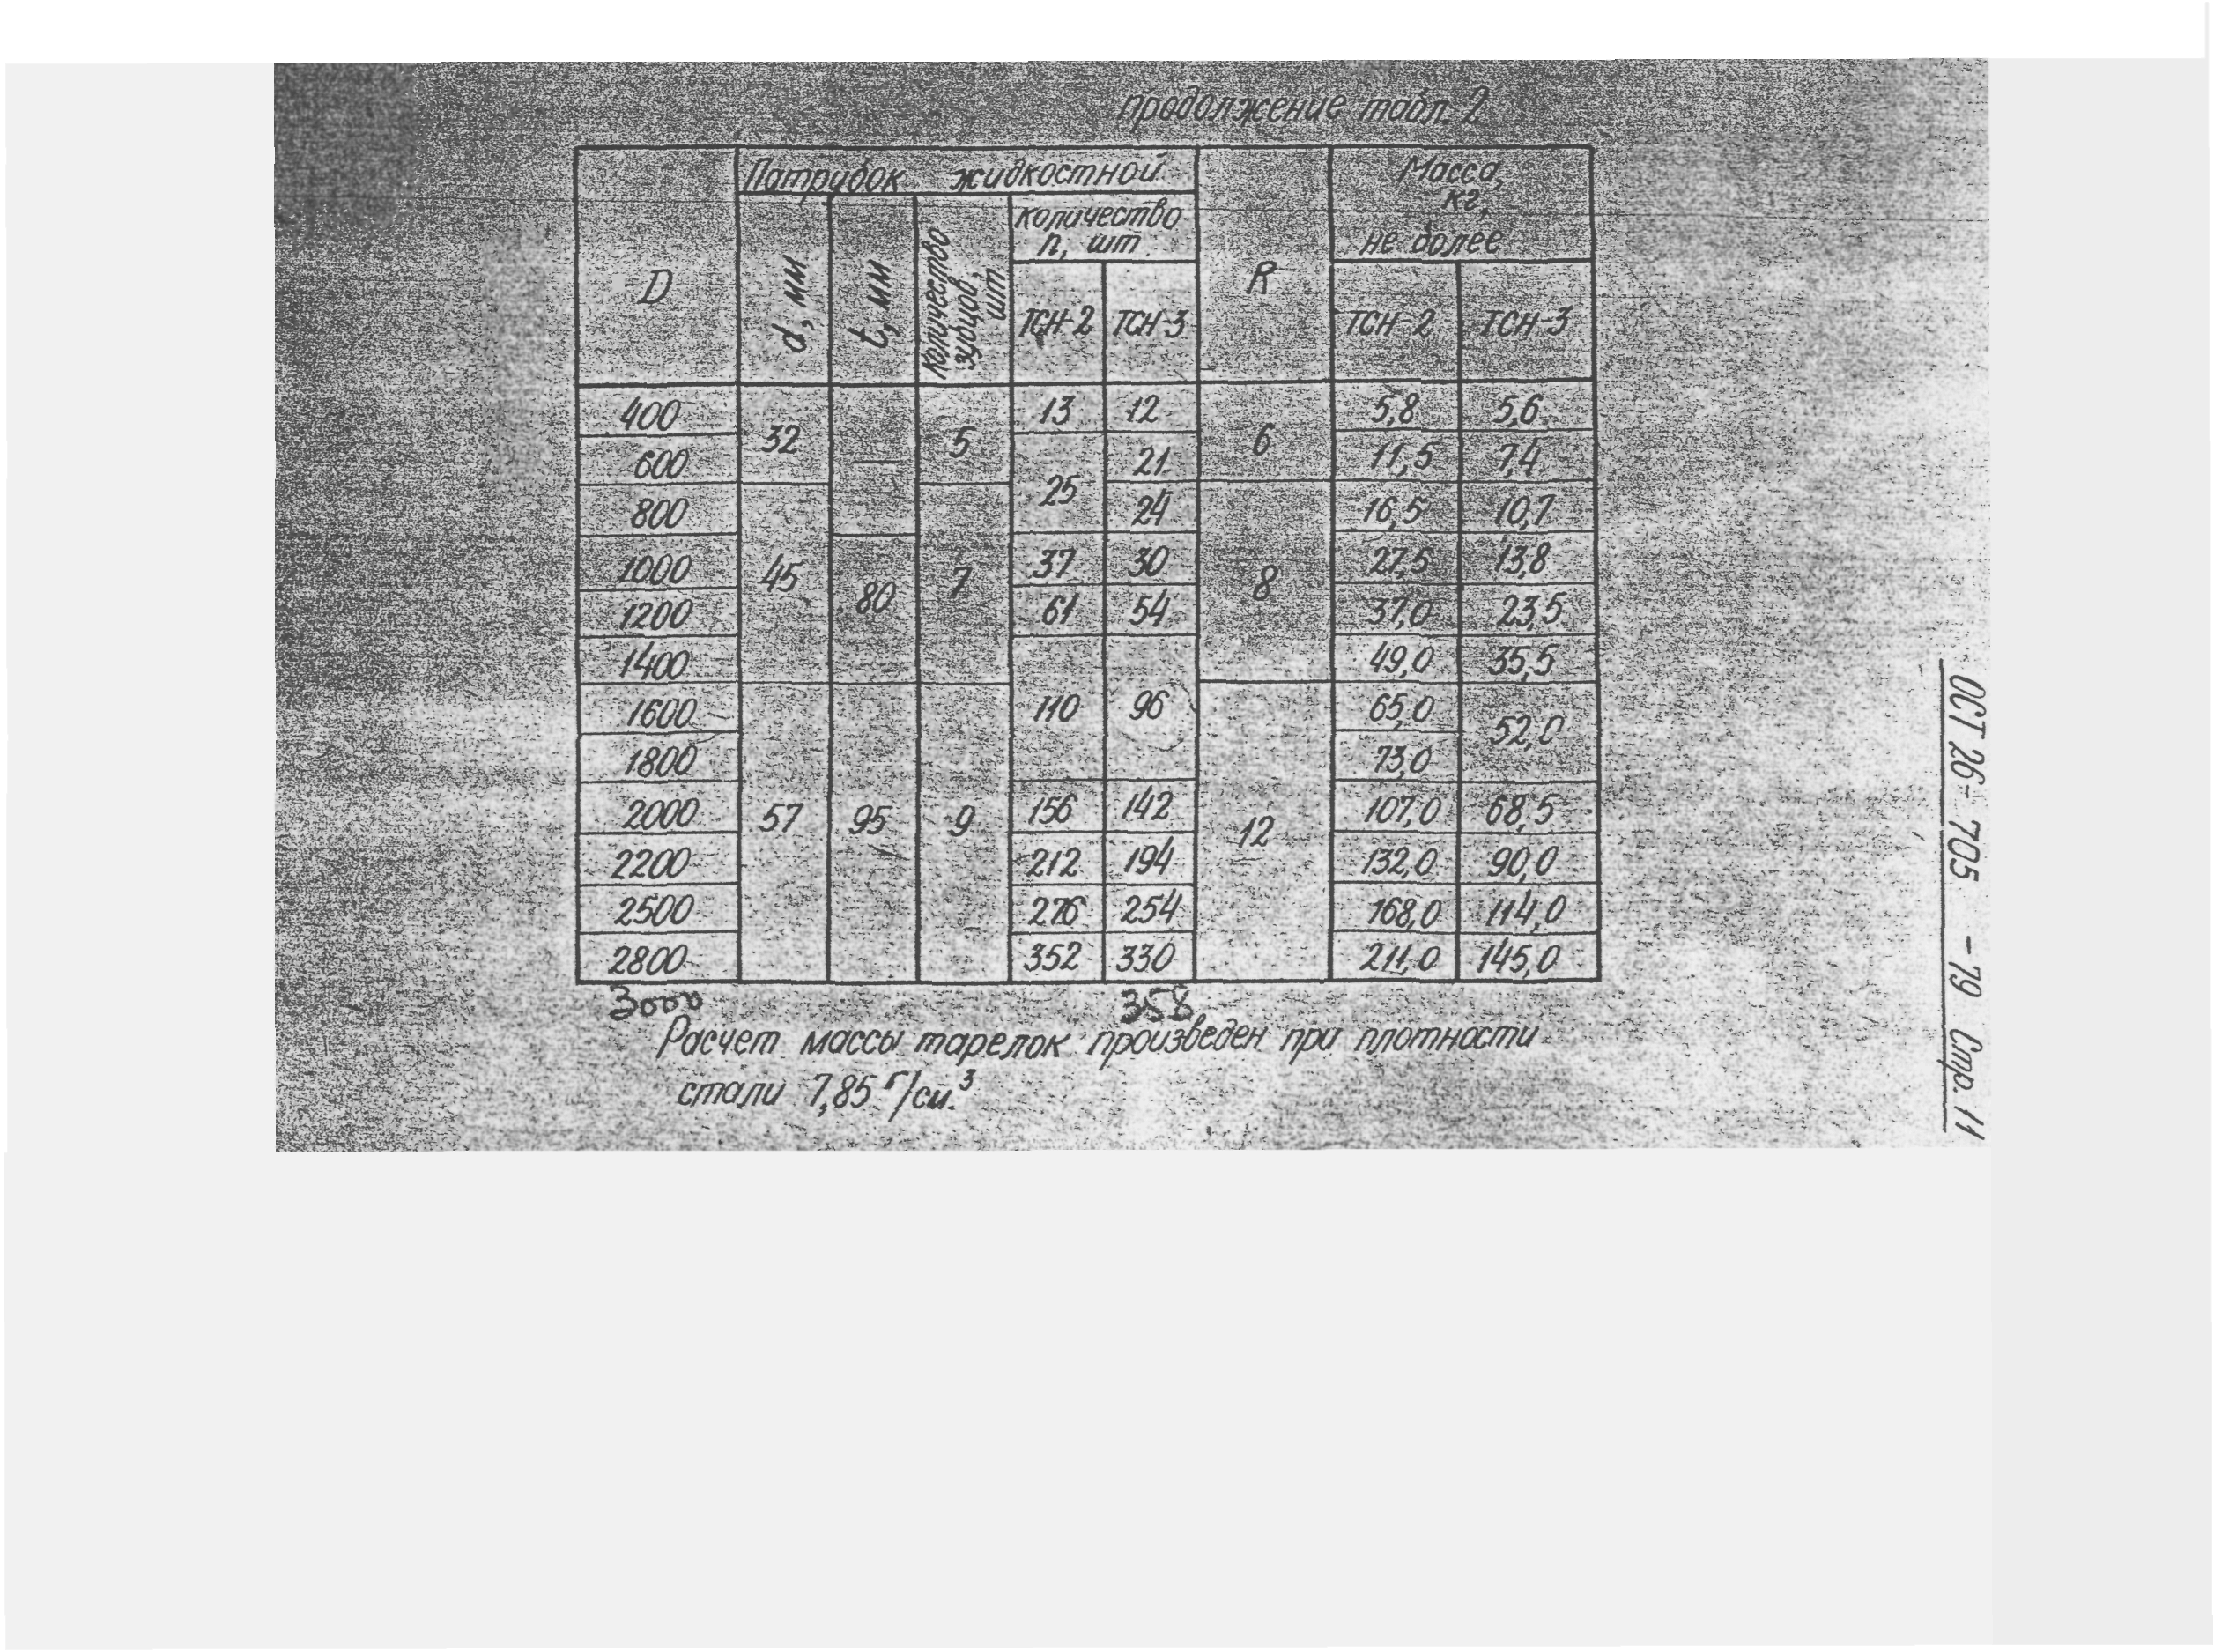 продолжение табл. 2
D
Патрубок жидкостной
R
Масса, кг, не более
d, мм
t, мм
количество зубцов, шт
количество n, шт
ТСН-2 ТСН-3
ТСН-2 ТСН-3
400 32 — 5 13 12 6 5,8 5,6
600 25 21 11,5 7,4
800 45 7 24 8 16,5 10,7
1000 80 37 30 27,5 13,8
1200 61 54 37,0 23,5
1400 110 96 49,0 35,5
1600 57 95 9 12 65,0 52,0
1800 73,0
2000 156 142 107,0 68,5
2200 212 194 132,0 90,0
2500 276 254 168,0 114,0
2800 352 330 211,0 145,0
3000 358
Расчет массы тарелок произведен при плотности
стали 7,85 г/см.³
ОСТ 26-705-79 Стр. 11